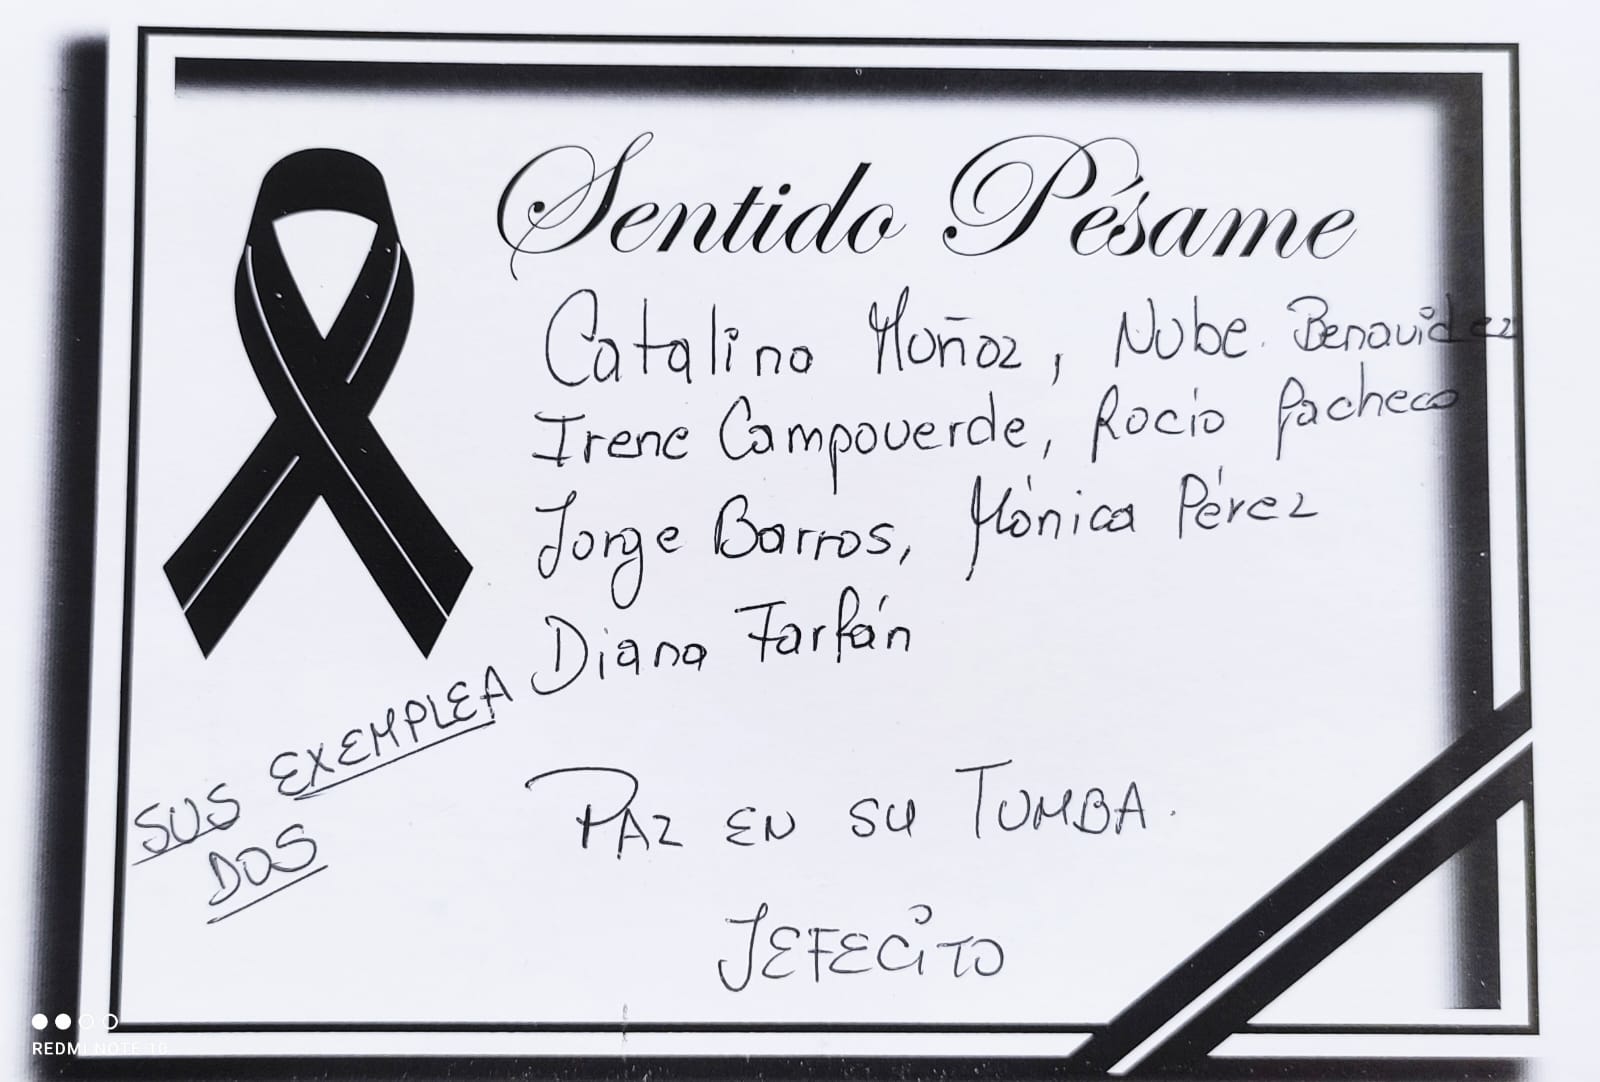 Sentido Pésame
Catalina Muñoz, Nube. Benavidez
Irene Campoverde, Rocío Pacheco
Jorge Barros, Mónica Pérez
Diana Farfán
SUS EXEMPLEA
DOS
PAZ EN SU TUMBA.
JEFECITO
REDMI NOTE 10